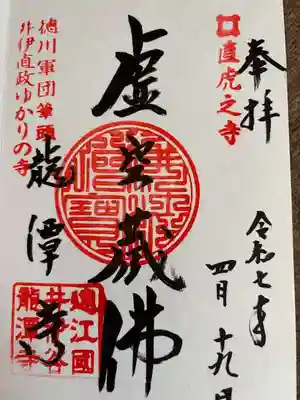 奉拝
直虎之寺
令和七年
四月十九日
虚空蔵佛
徳川軍団筆頭
井伊直政ゆかりの寺
龍潭寺
遠江國
井伊谷
龍潭寺